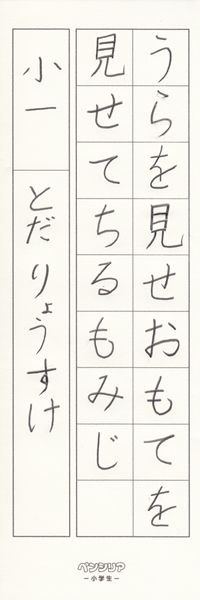 うらを見せおもてを
見せてちるもみじ
小一 とだりょうすけ
ペンシリア
－小学生－